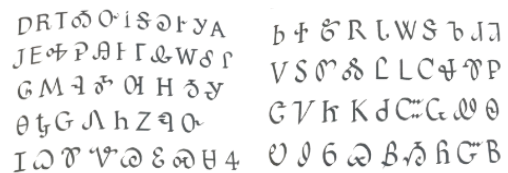 Ꭰ Ꭱ Ꭲ Ꭳ Ꭴ Ꭵ Ꭶ Ꭷ Ꭸ Ꭹ Ꭺ
Ꭻ Ꭼ Ꭽ Ꭾ Ꭿ Ꮀ Ꮁ Ꮂ Ꮃ Ꮄ Ꮅ
Ꮆ Ꮇ Ꮈ Ꮉ Ꮊ Ꮋ Ꮌ Ꮍ
Ꮎ Ꮏ Ꮐ Ꮑ Ꮒ Ꮓ Ꮔ Ꮕ
Ꮖ Ꮗ Ꮘ Ꮙ Ꮚ Ꮛ Ꮜ Ꮝ Ꮞ
Ꮟ Ꮠ Ꮡ Ꮢ Ꮣ Ꮤ Ꮥ Ꮦ Ꮧ Ꮨ
Ꮩ Ꮪ Ꮫ Ꮬ Ꮭ Ꮮ Ꮯ Ꮰ Ꮱ Ꮲ
Ꮳ Ꮴ Ꮵ Ꮶ Ꮷ Ꮸ Ꮹ Ꮺ Ꮻ
Ꮼ Ꮽ Ꮾ Ꮿ Ᏸ Ᏹ Ᏺ Ᏻ Ᏼ